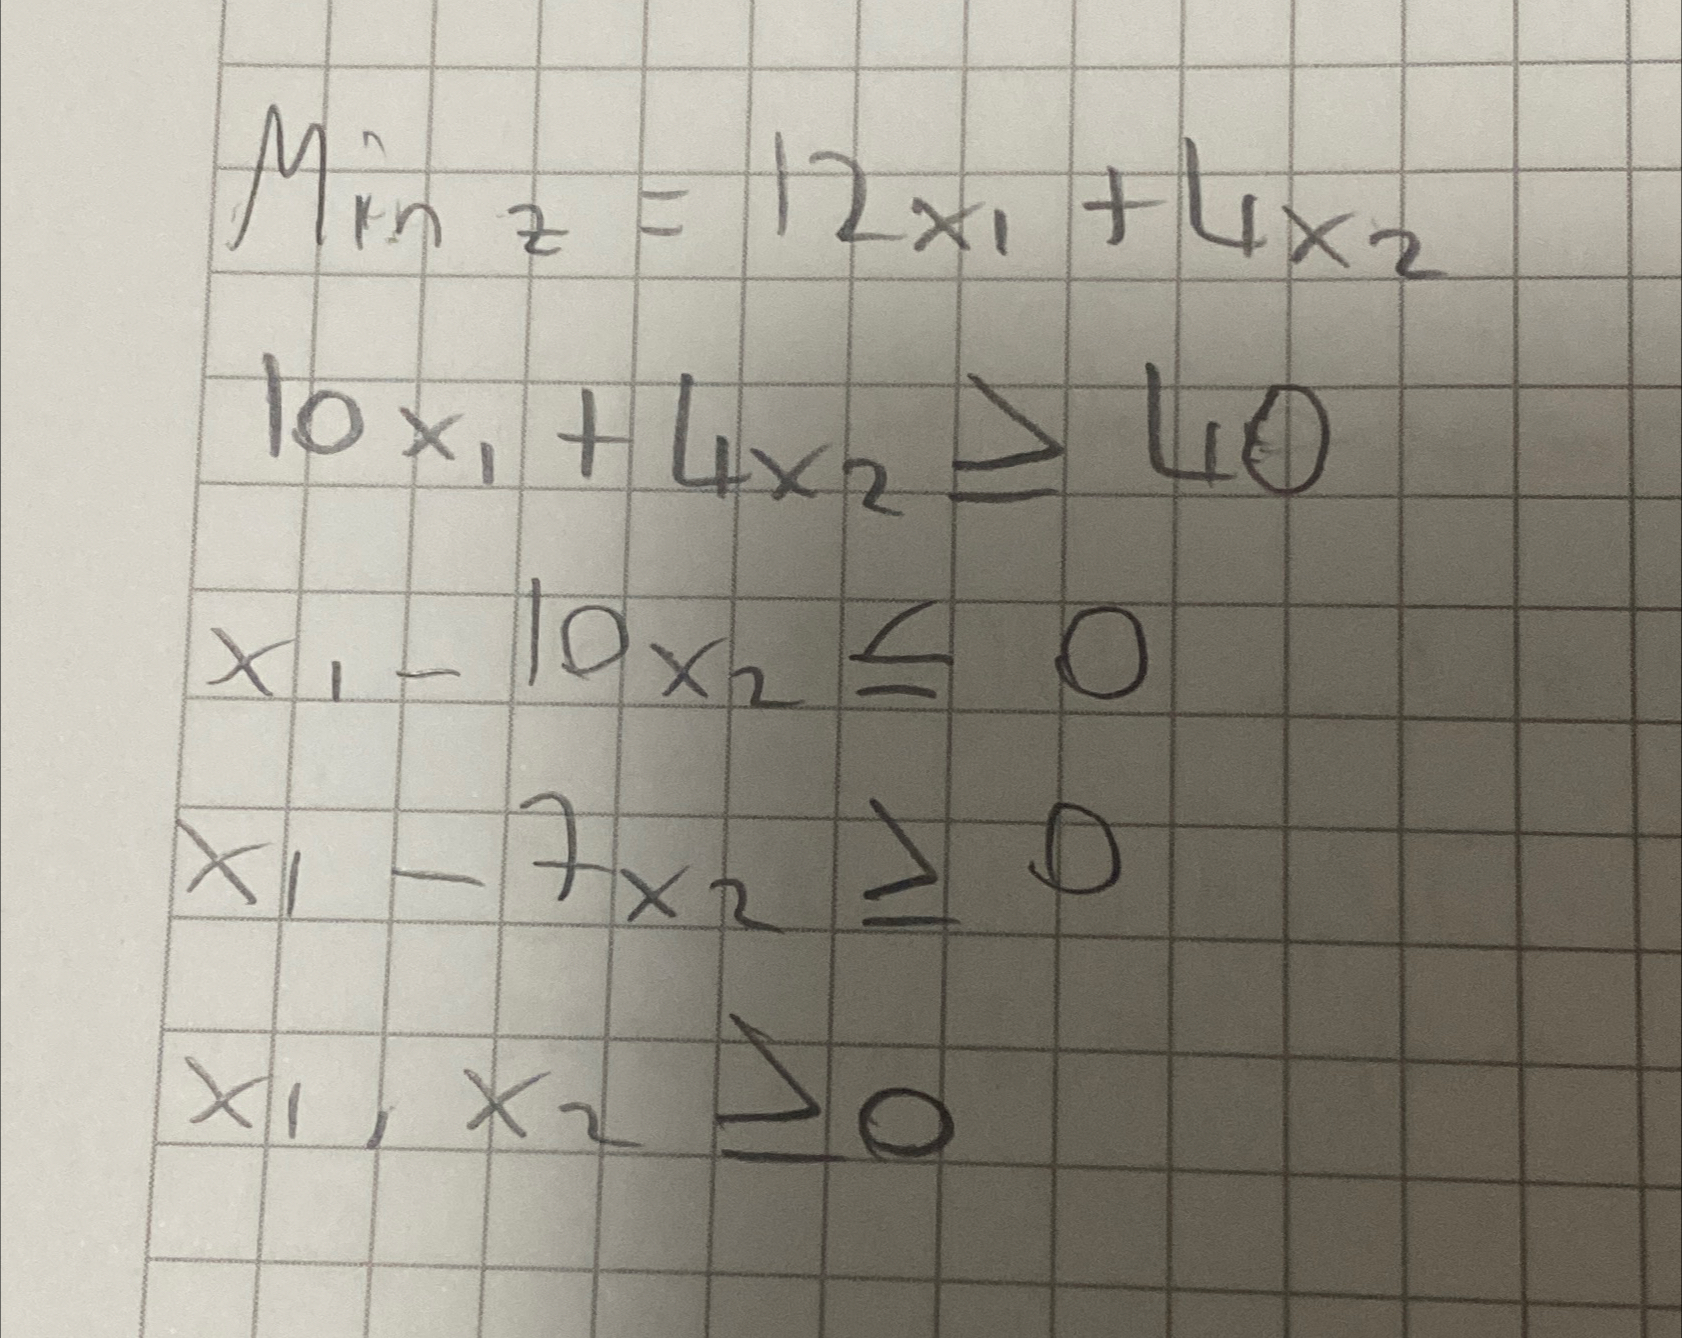 Min z = 12x₁ + 4x₂
10x₁ + 4x₂ ≥ 40
x₁ - 10x₂ ≤ 0
x₁ - 7x₂ ≥ 0
x₁, x₂ ≥ 0